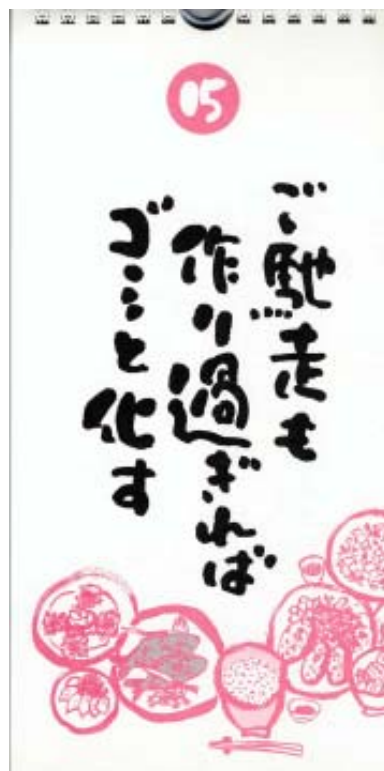 05
ご馳走も
作り過ぎれば
ゴミと化す